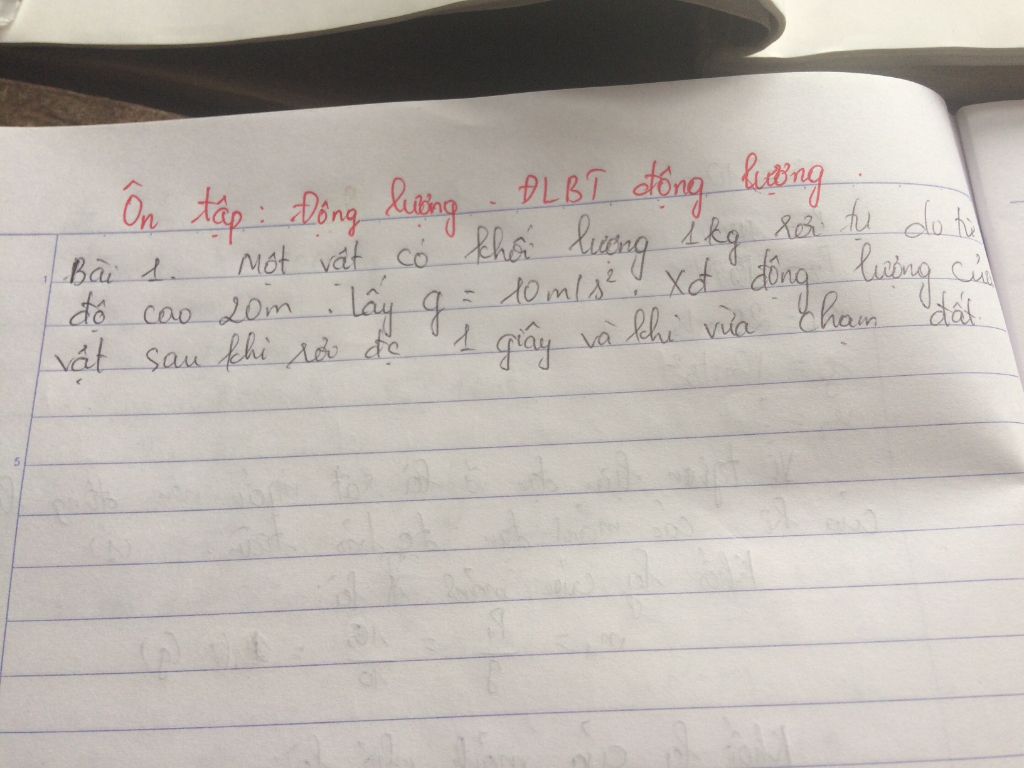 Ôn tập: Động lượng. ĐLBT động lượng.
Bài 1. Một vật có khối lượng 1kg rơi tự do từ
độ cao 20m. Lấy g = 10m/s². Xđ động lượng của
vật sau khi rơi đc 1 giây và khi vừa chạm đất.
5